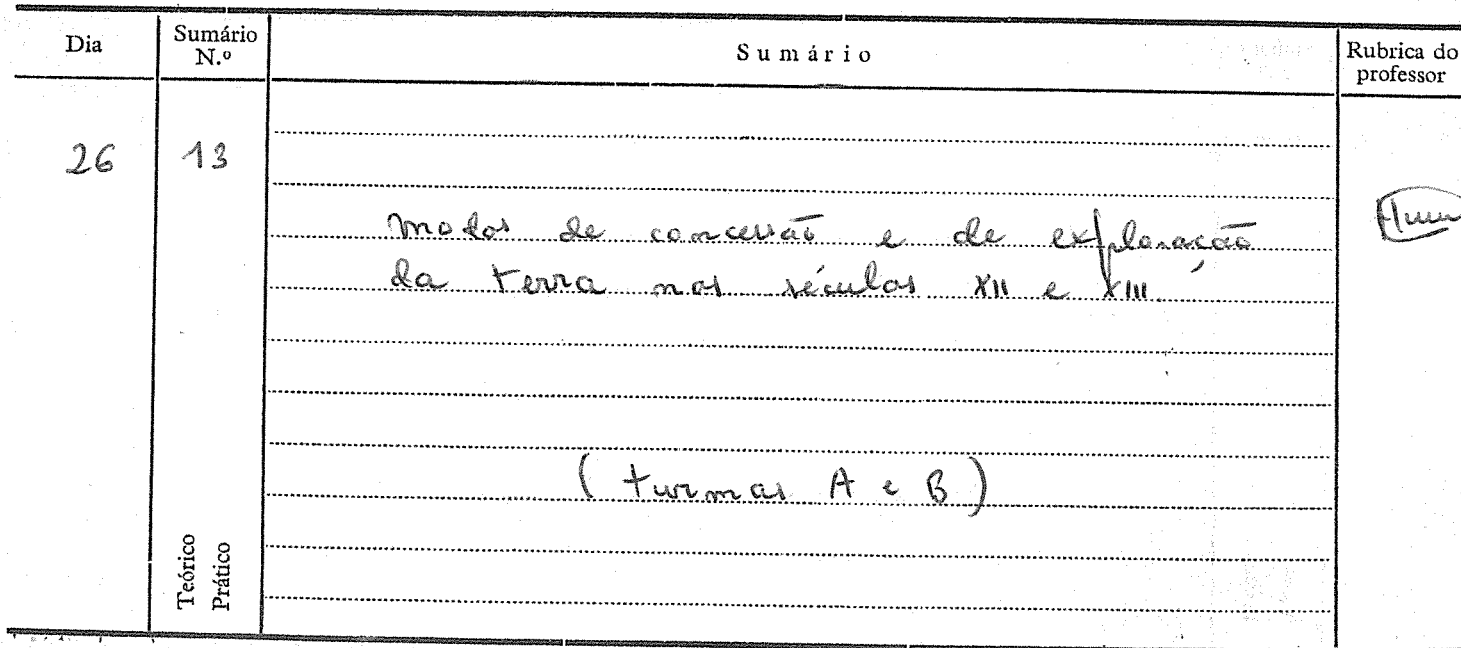 Dia
Sumário
N.º
Sumário
Rubrica do
professor
26
13
Modos de concessão e de exploração
da terra nos séculos XII e XIII
(turmas A e B)
Teórico
Prático